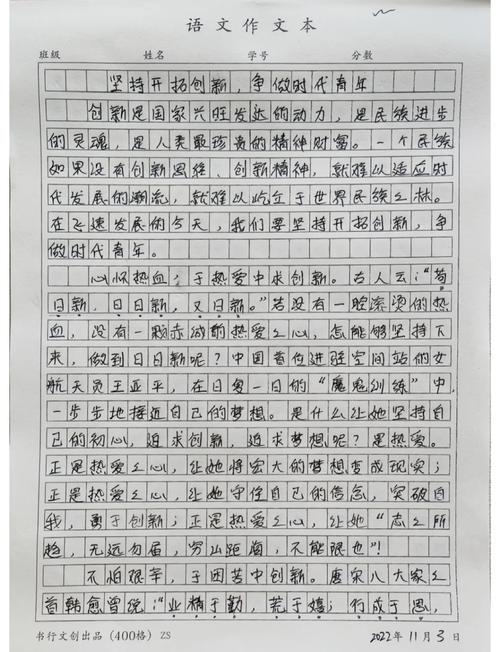 语文作文本
班级 姓名 学号 分数
坚持开拓创新，争做时代青年
创新是国家兴旺发达的动力，是民族进步
的灵魂，是人类最珍贵的精神财富。一个民族
如果没有创新思维、创新精神，就难以适应时
代发展的潮流，就难以屹立于世界民族之林。
在飞速发展的今天，我们要坚持开拓创新，争
做时代青年。
心怀热血，于热爱中求创新。古人云：“苟
日新，日日新，又日新。”若没有一腔滚烫的热
血，没有一颗赤诚的热爱之心，怎能够坚持下
来，做到日日新呢？中国首位进驻空间站的女
航天员王亚平，在日复一日的“魔鬼训练”中，
一步步地接近自己的梦想。是什么让她坚持自
己的初心，追求创新，追求梦想呢？是热爱。
正是热爱之心，让她将宏大的梦想变成现实；
正是热爱之心，让她守住自己的信念，突破自
我，勇于创新；正是热爱之心，让她“志之所
趋，无远勿届，穷山距海，不能限也”！
不怕艰辛，于困苦中创新。唐宋八大家之
首韩愈曾说：“业精于勤，荒于嬉；行成于思，
书行文创出品（400格）ZS 2022年11月3日